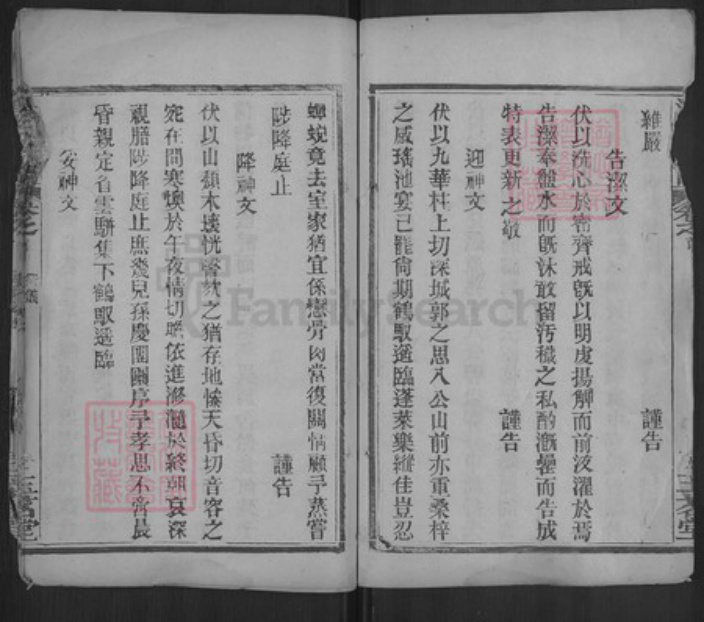 雍嚴　謹告
告潔文
伏以洗心於密齊戒旣以明虔揚觶而前洨濯於焉
告潔奉盤水而旣沐敢留汚穢之私酌漑罍而告成
特表更新之敬　謹告
迎神文
伏以九華柱上切深城郭之思八公山前亦重桑梓
之感瑤池宴已罷尙期鶴馭遙臨蓬萊樂縱佳豈忍
蟬蛻竟去室家猶宜係戀骨肉當復關情顧予蒸嘗
陟降庭止　謹告
降神文
伏以山頹木壞恍謦欬之猶存地慘天昏切音容之
宛在問寒燠於午夜情切瞻依進滫瀡於終朝哀深
視膳陟降庭止庶幾兒孫慶團圞序予孝思不啻晨
昏親定省雲駢集下鶴馭遙臨
安神文
FamilySearch